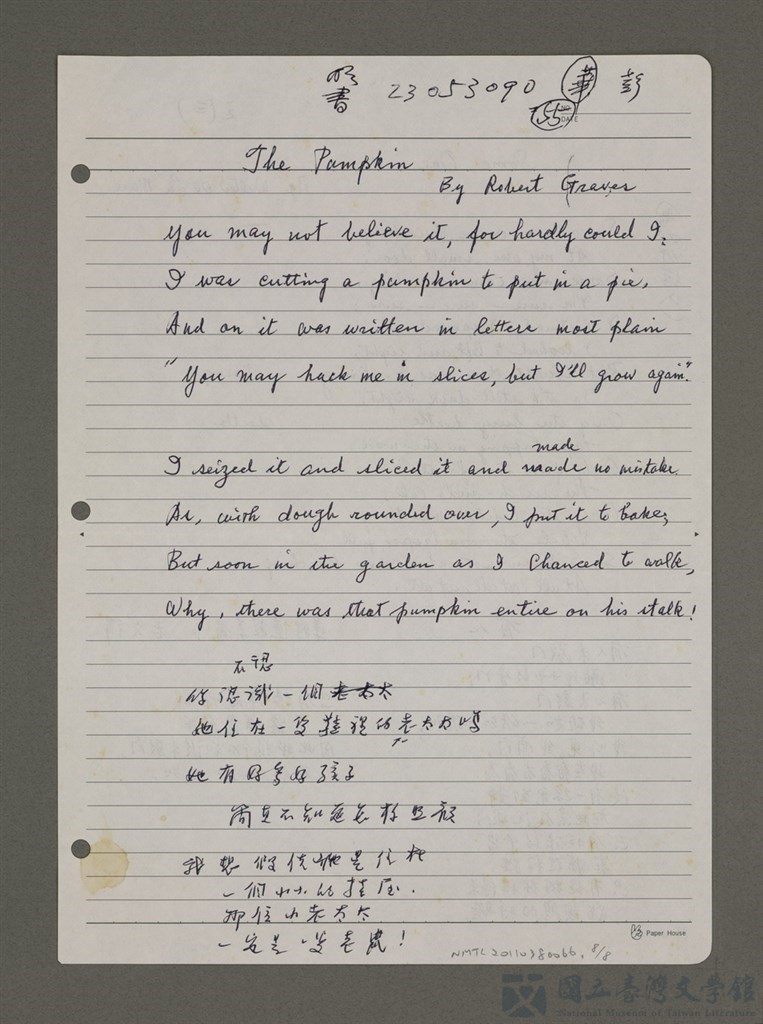 23053090 華 彭
書
55
NO.
DATE
The Pumpkin
By Robert Graves
You may not believe it, for hardly could I:
I was cutting a pumpkin to put in a pie,
And on it was written in letters most plain
"You may hack me in slices, but I'll grow again".
I seized it and sliced it and made no mistake
made
As, with dough rounded over, I put it to bake;
But soon in the garden as I chanced to walk,
Why, there was that pumpkin entire on his stalk!
不認
你認識一個老太太
她住在一隻鞋裡的老太太嗎
她有好多好孩子
簡直不知道怎樣照顧
我想假使她是住在
一個小小的鞋屋.
那個小老太太
一定是一隻老鼠!
Paper House
NMTL20110380066, 8/8
國立臺灣文學館
National Museum of Taiwan Literature